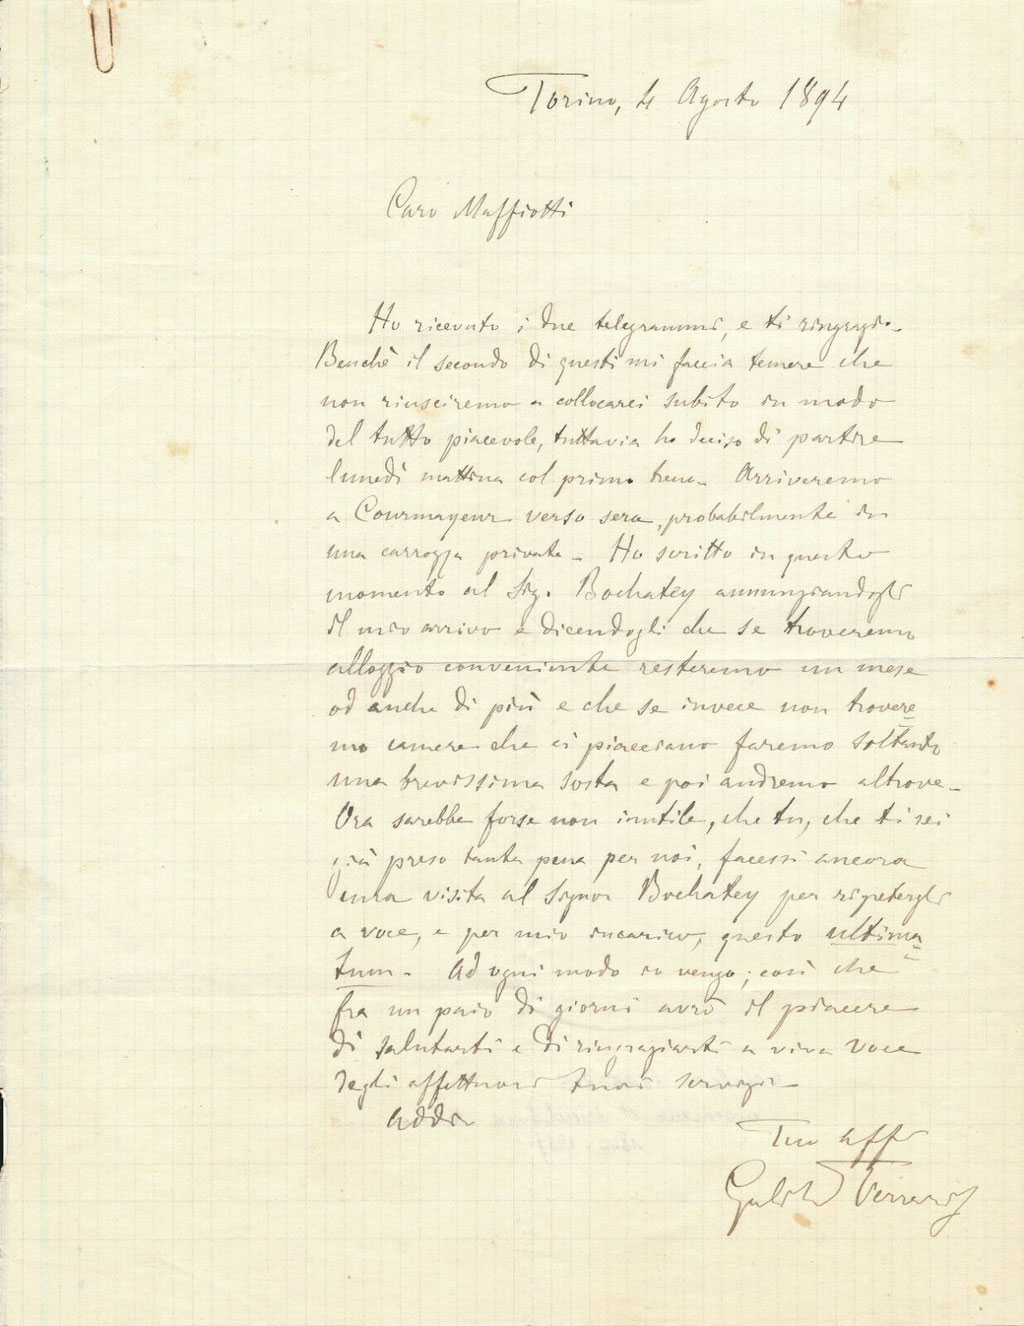 Torino, 4 Agosto 1894
Caro Maffiotti
Ho ricevuto i due telegrammi, e ti ringrazio.
Benchè il secondo di questi mi faccia temere che
non riusciremo a collocarci subito in modo
del tutto piacevole, tuttavia ho deciso di partire
lunedì mattina col primo treno. Arriveremo
a Courmayeur verso sera, probabilmente in
una carrozza privata. Ho scritto in questo
momento al Sig. Bochatey annunziandogli
il mio arrivo e dicendogli che se troveremo
alloggio conveniente resteremo un mese
od anche di più e che se invece non trovere
mo camere che ci piacciano faremo soltanto
una brevissima sosta e poi andremo altrove.
Ora sarebbe forse non inutile, che tu, che ti sei
già preso tanta pena per noi, facessi ancora
una visita al Signor Bochatey per ripetergli
a voce, e per mio incarico, questo ultima
tum. Ad ogni modo io vengo; così che
fra un paio di giorni avrò il piacere
di salutarti e di ringraziarti a viva voce
degli affettuosi tuoi servizi.
Addio
Tuo aff
Galileo Ferraris